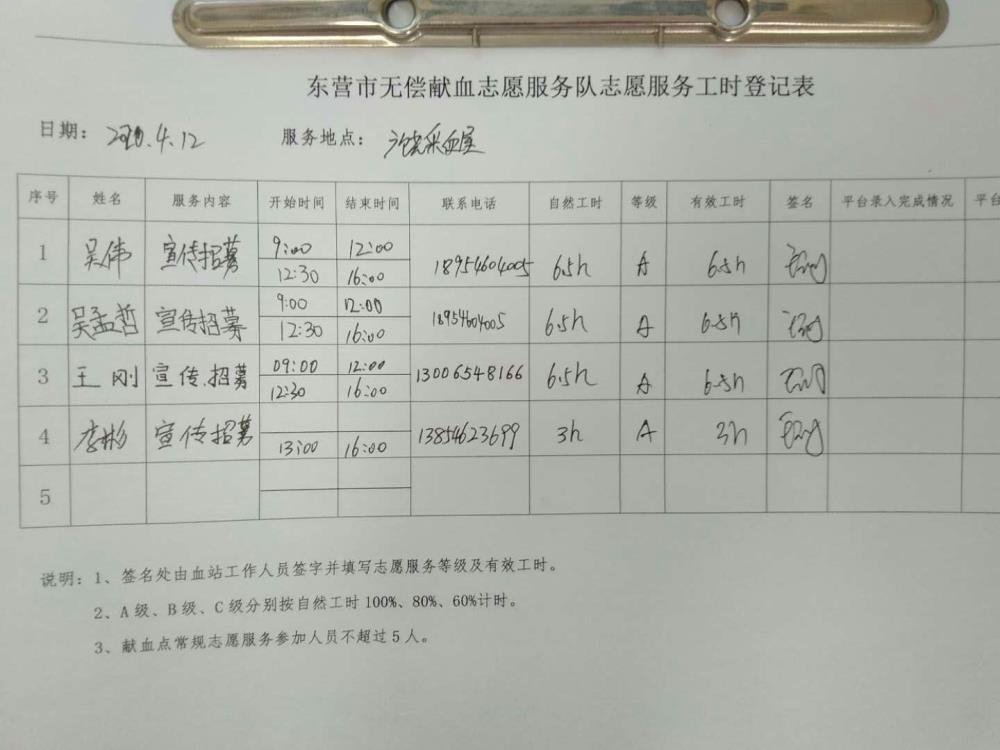 东营市无偿献血志愿服务队志愿服务工时登记表
日期： 2020.4.12 服务地点： 采血屋
序号 姓名 服务内容 开始时间 结束时间 联系电话 自然工时 等级 有效工时 签名 平台录入完成情况 平台
1 吴伟 宣传招募 9:00 12:00 18954604005 6.5h A 6.5h
12:30 16:00
2 吴孟哲 宣传招募 9:00 12:00 18954604005 6.5h A 6.5h
12:30 16:00
3 王刚 宣传.招募 09:00 12:00 13006548166 6.5h A 6.5h
12:30 16:00
4 李彬 宣传招募 13:00 16:00 13854623699 3h A 3h
5
说明：1、签名处由血站工作人员签字并填写志愿服务等级及有效工时。
2、A 级、B 级、C 级分别按自然工时 100%、80%、60%计时。
3、献血点常规志愿服务参加人员不超过 5 人。